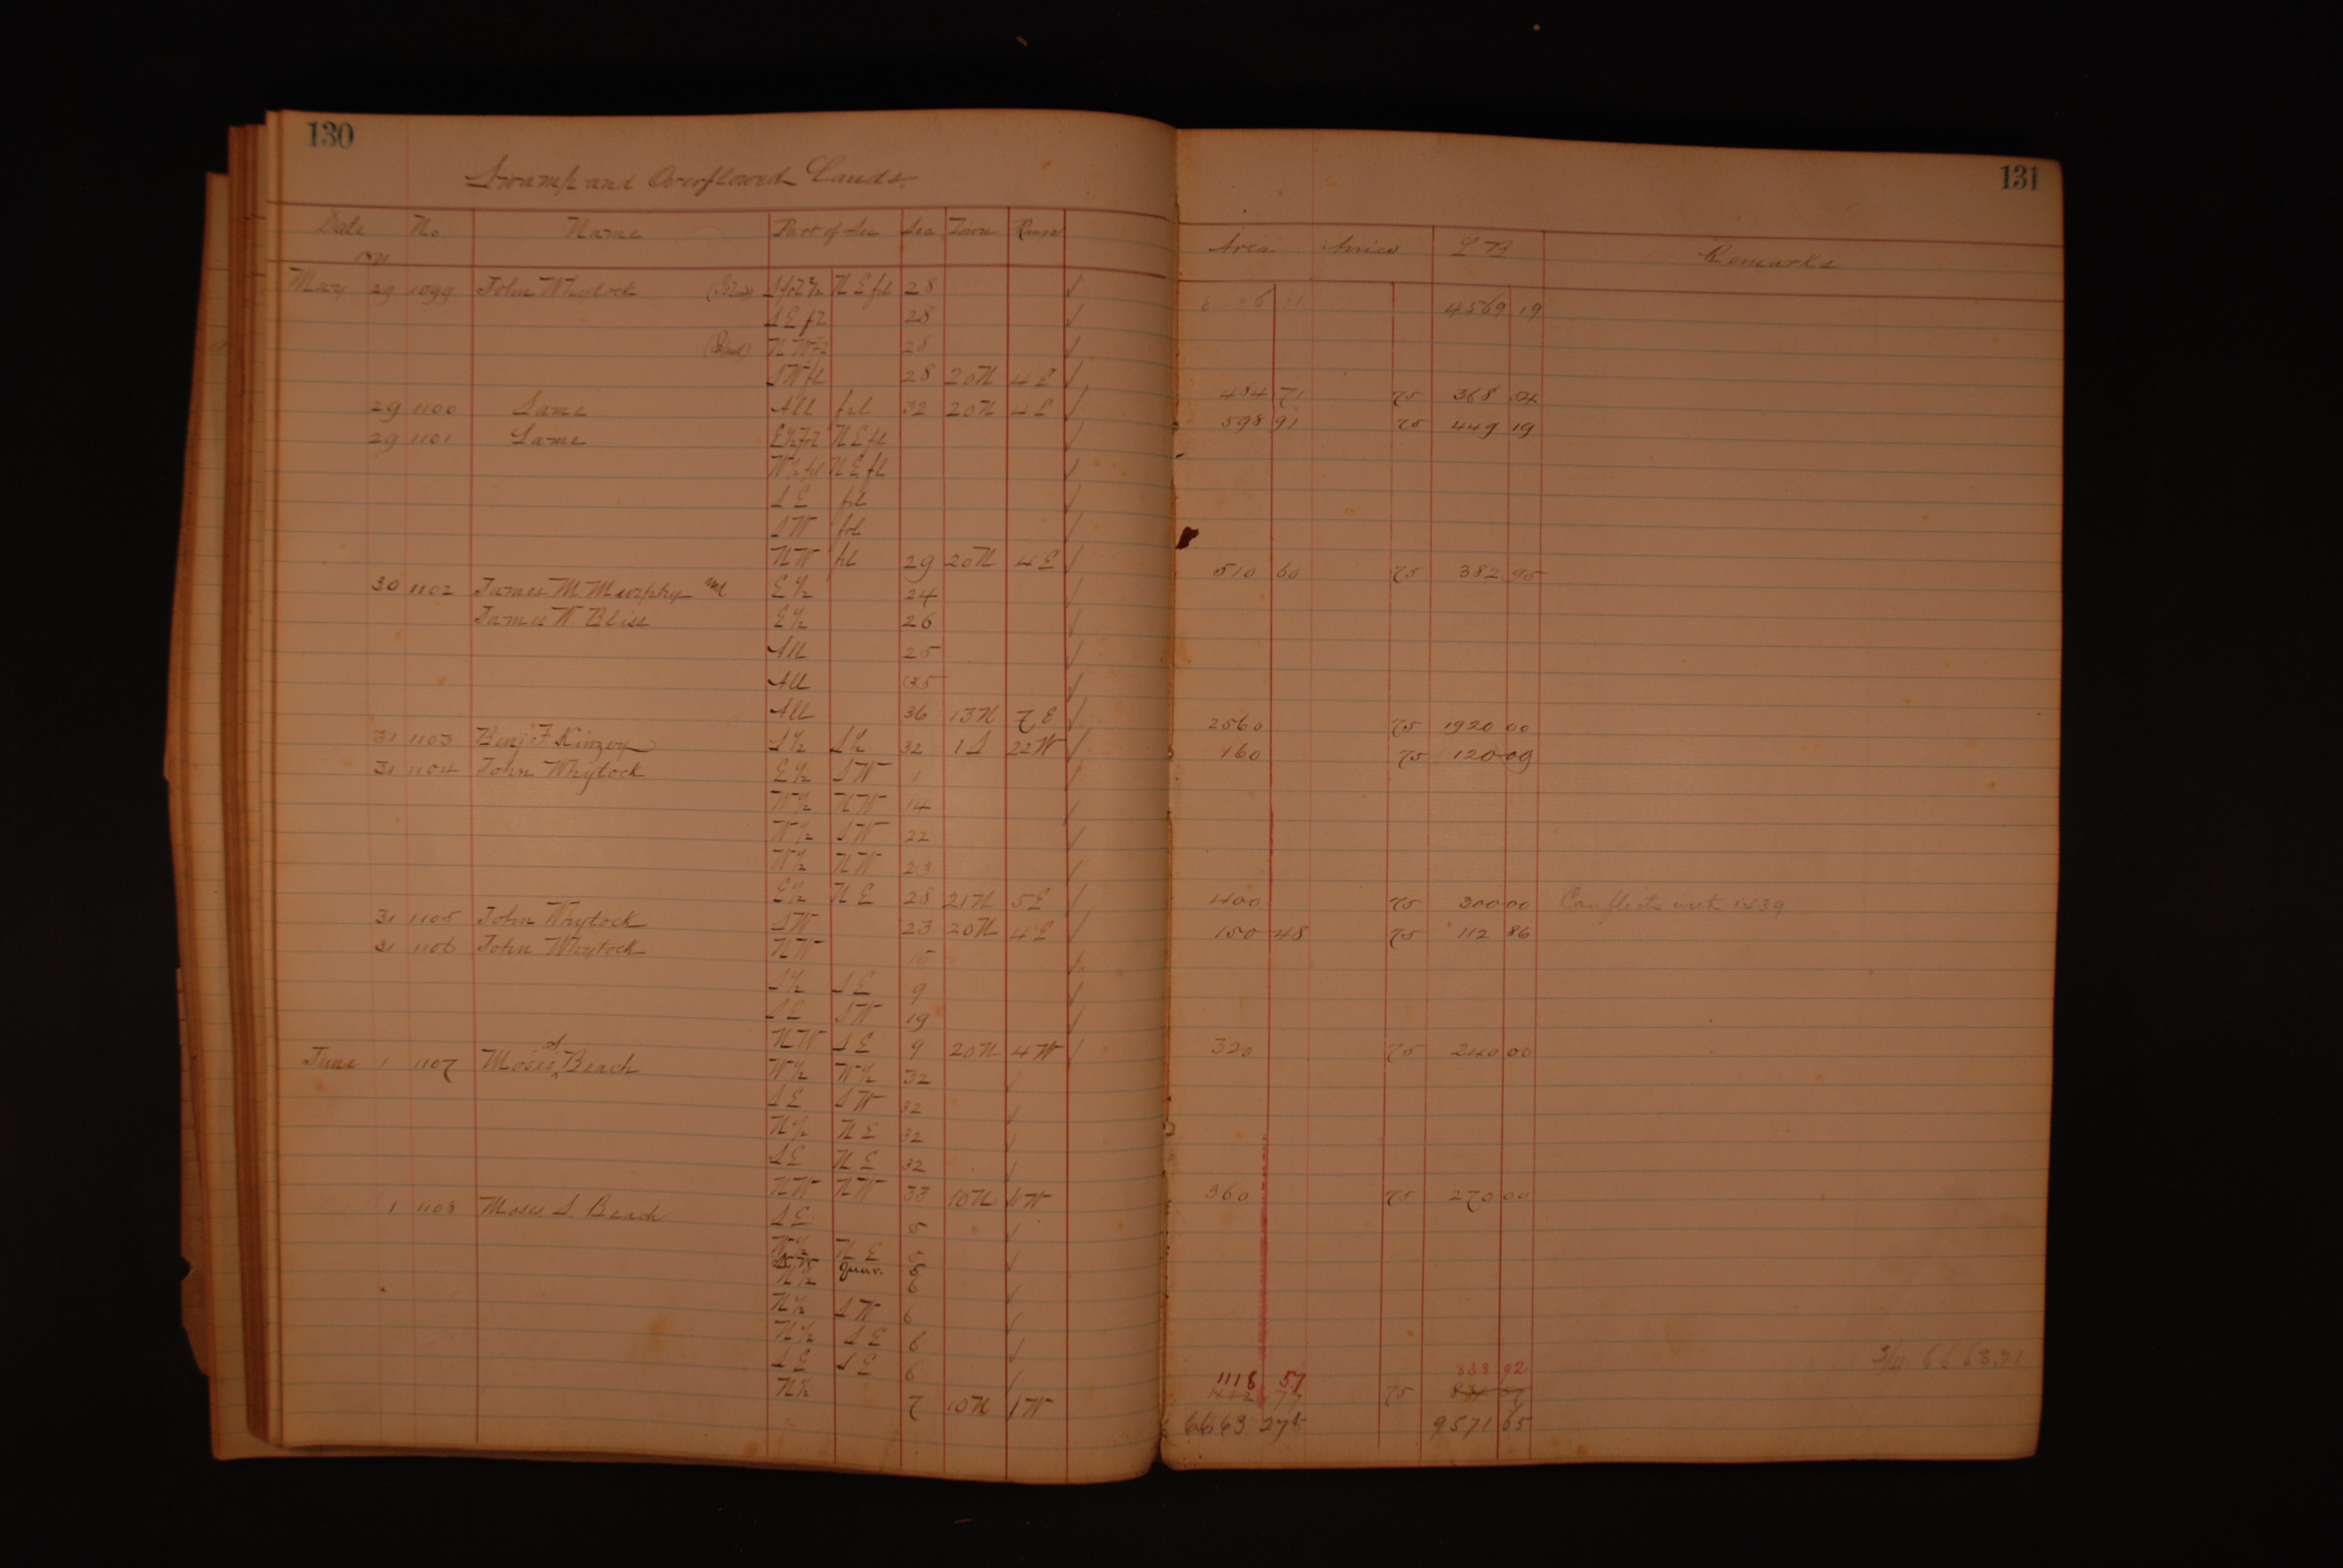 130
Swamp and Overflowed Lands.
Date No Name Part of Sec Sec Town Range
1871
May 29 1099 John Whytock S frl ½ N E frl 28 ✓
S E frl 28 ✓
N W frl 28 ✓
S W frl 28 20 N 4 E ✓
29 1100 Same All frl 32 20 N 4 E ✓
29 1101 Same E ½ frl N E frl ✓
W ½ frl N E frl ✓
S E frl ✓
S W frl ✓
N W frl 29 20 N 4 E ✓
30 1102 James M Murphy and E ½ 24 ✓
James W Bliss E ½ 26 ✓
All 25 ✓
All 35 ✓
All 36 13 N 7 E ✓
31 1103 Benj F Kinzey S ½ S ½ 32 1 S 22 W ✓
31 1104 John Whytock E ½ S W 1 ✓
W ½ N W 14 ✓
W ½ S W 22 ✓
W ½ N W 23 ✓
E ½ N E 28 21 N 5 E ✓
31 1105 John Whytock S W 23 20 N 4 E ✓
31 1106 John Whytock N W 15 ✓
S ½ S E 9 ✓
S E S W 19 ✓
N W S E 9 20 N 4 W ✓
June 1 1107 Moses S Beach W ½ W ½ 32 ✓
S E S W 32 ✓
N ½ N E 32 ✓
S E N E 32 ✓
N W N W 33 10 N 1 W
1 1108 Moses S. Beach S E 5 ✓
W ½ N E 5 ✓
quar. 5
N ½ 6 ✓
N ½ S W 6 ✓
N ½ S E 6 ✓
S E S E 6
N ½ 7 10 N 1 W
131
Area Price Remarks
4569 19
484 71 75 368 54
598 91 75 449 19
510 60 75 382 95
2560 75 1920 00
160 75 120 00
400 75 300 00 Conflicts with 1439
150 48 75 112 86
320 75 240 00
360 75 270 00
838 92
1118 57
75
6663 27
9571 65